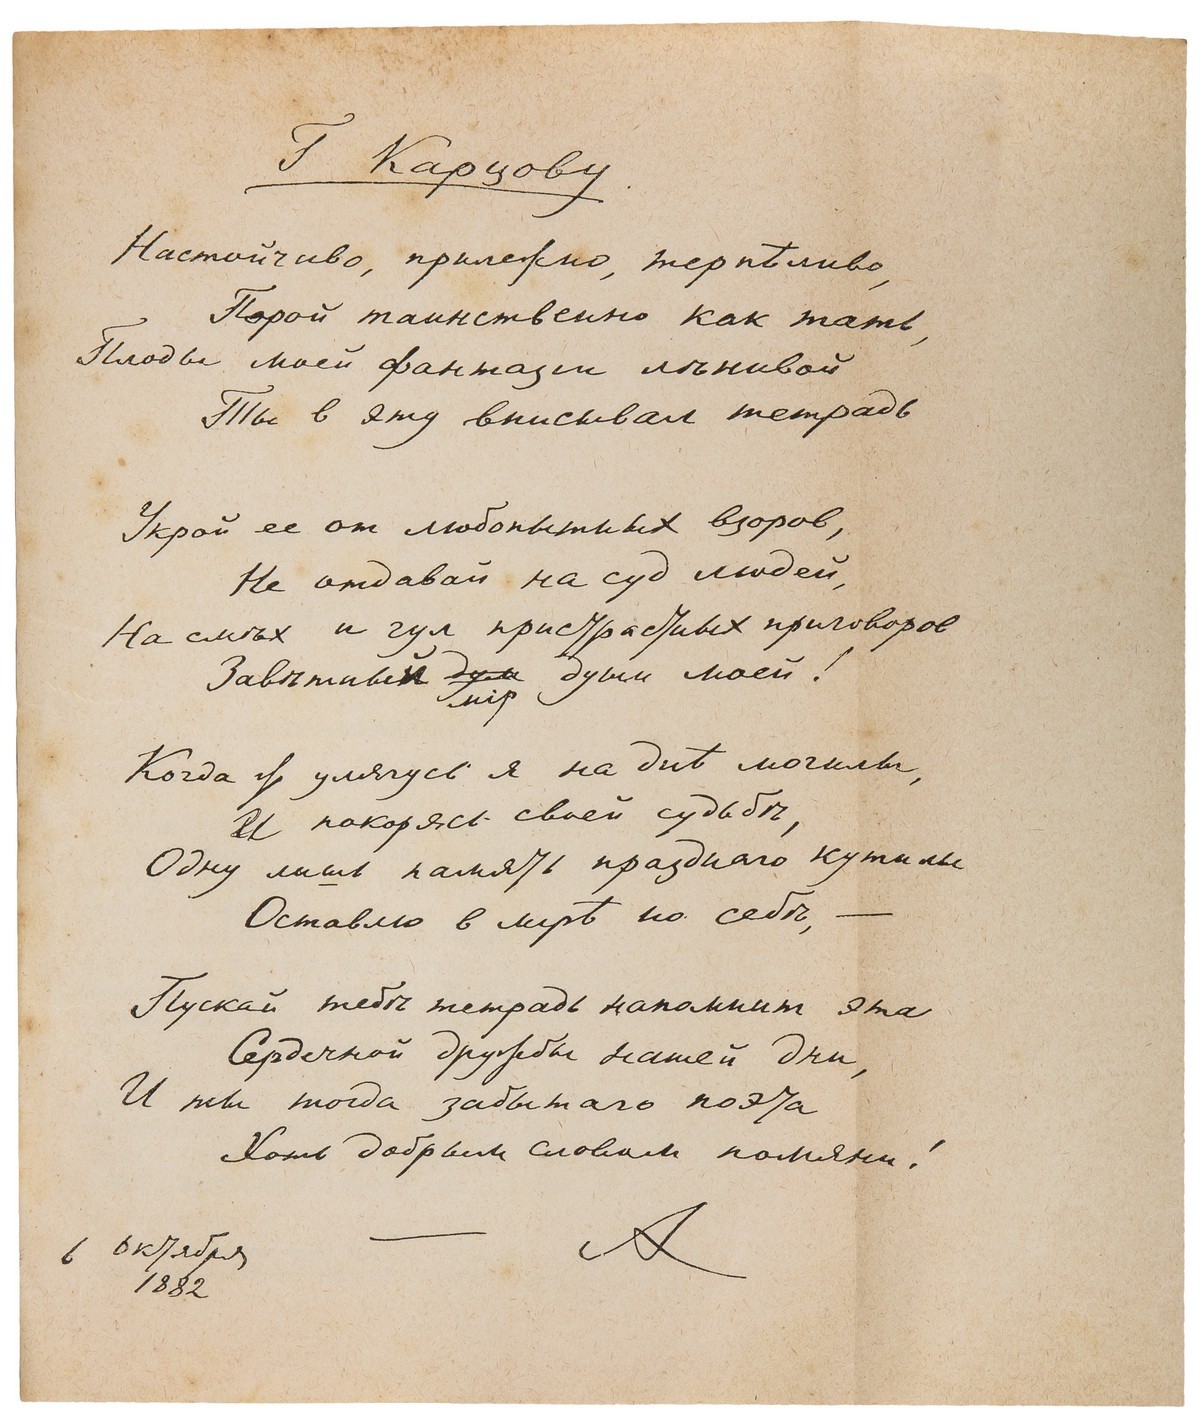 Г Карцову
Настойчиво, прилежно, терпѣливо,
Порой таинственно как тать,
Плоды моей фантазіи лѣнивой
Ты в эту вписывал тетрадь
Укрой ее от любопытных взоров,
Не отдавай на суд людей,
На смѣх и гул пристрастных приговоров
Завѣтный души моей!
мір
Когда улягусь я на днѣ могилы,
И покорясь своей судьбѣ,
Одну лишь память празднаго кутилы
Оставлю в мірѣ по себѣ, —
Пускай тебѣ тетрадь напомнит эта
Сердечной дружбы нашей дни,
И ты тогда забытаго поэта
Хоть добрым словом помяни!
— А
6 октября
1882